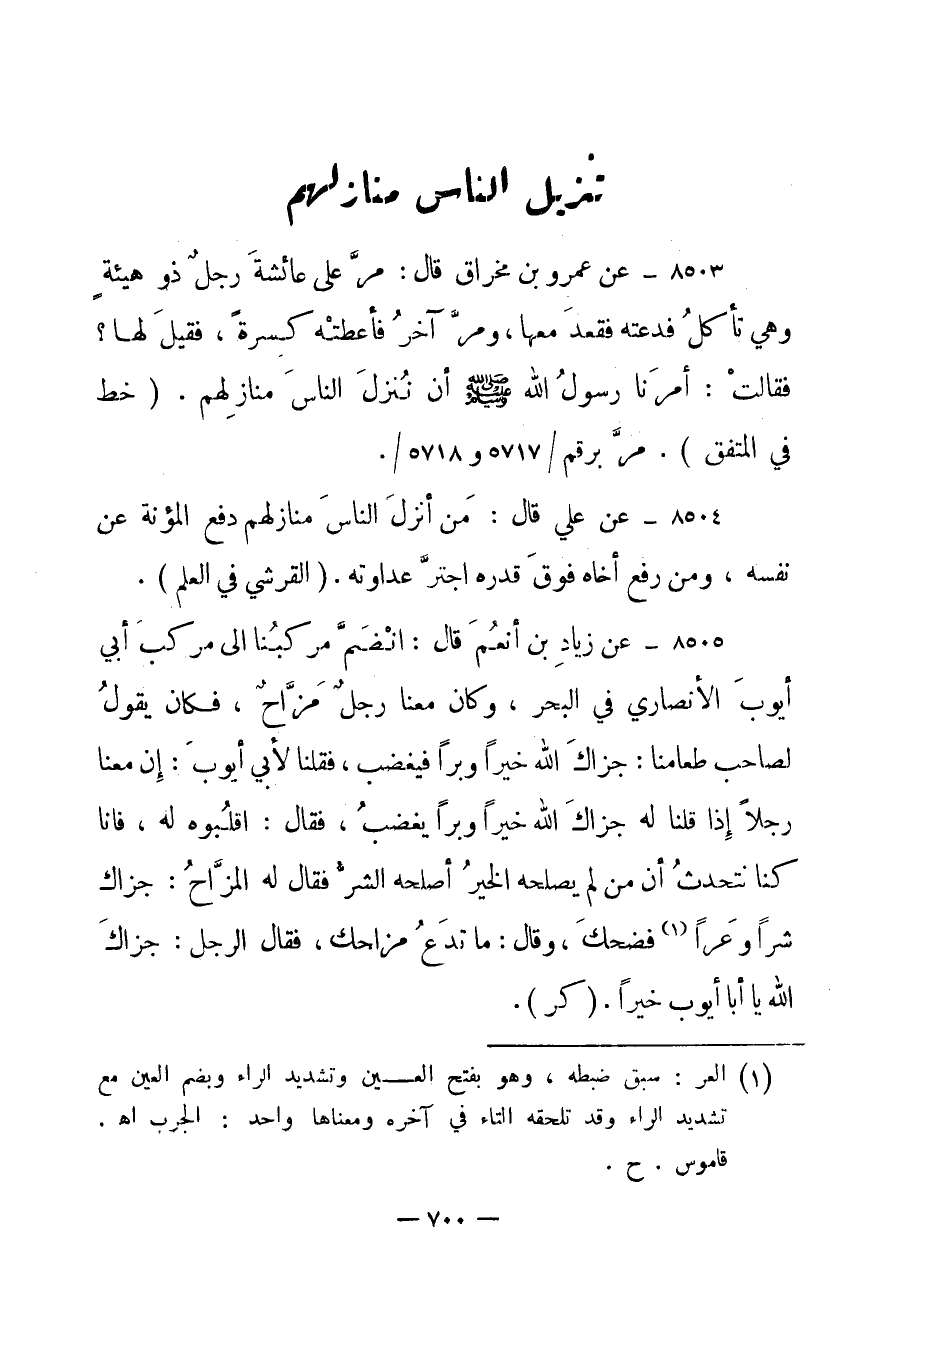 تنزيل الناس منازلهم
٨٥٠٣ - عن عمرو بن مخراق قال : مرَّ على عائشةَ رجلٌ ذو هيئةٍ
وهي تأكلُ فدعته فقعدَ معها ، ومرَّ آخرُ فأعطتْه كسرةً ، فقيلَ لهـا ؟
فقالتْ : أمرَنا رسولُ الله ﷺ أن نُنزلَ الناسَ منازلهم . ( خط
في المتفق ) . مرَّ برقم /٥٧١٧ و ٥٧١٨/ .
٨٥٠٤ - عن علي قال : مَن أنزلَ الناسَ منازلهم دفع المؤنة عن
نفسه ، ومن رفع أخاه فوقَ قدره اجترَّ عداوته . ( القرشي في العلم ) .
٨٥٠٥ - عن زيادِ بن أنعُمَ قال : انْضَمَّ مركبُنا الى مركبَ أبي
أيوبَ الأنصاري في البحر ، وكان معنا رجلٌ مَزَّاحٌ ، فـكان يقولُ
لصاحب طعامنا : جزاكَ الله خيراً وبراً فيغضب ، فقلنا لأبي أيوبَ : إن معنا
رجلاً إذا قلنا له جزاكَ الله خيراً وبراً يغضبُ ، فقال : اقلُبوه له ، فانا
كنا نتحدثُ أن من لم يصلحه الخيرُ أصلحه الشرُّ فقال له المزَّاحُ : جزاك
شراً وعَراً (١) فضحكَ ، وقال : ما تدَعُ مزاحك ، فقال الرجل : جزاكَ
الله يا أبا أيوب خيراً . ( كر ) .
(١) العر : سبق ضبطه ، وهو بفتح العـــين وتشديد الراء وبضم العين مع
تشديد الراء وقد تلحقه التاء في آخره ومعناها واحد : الجرب اه .
قاموس . ح .
— ٧٠٠ —